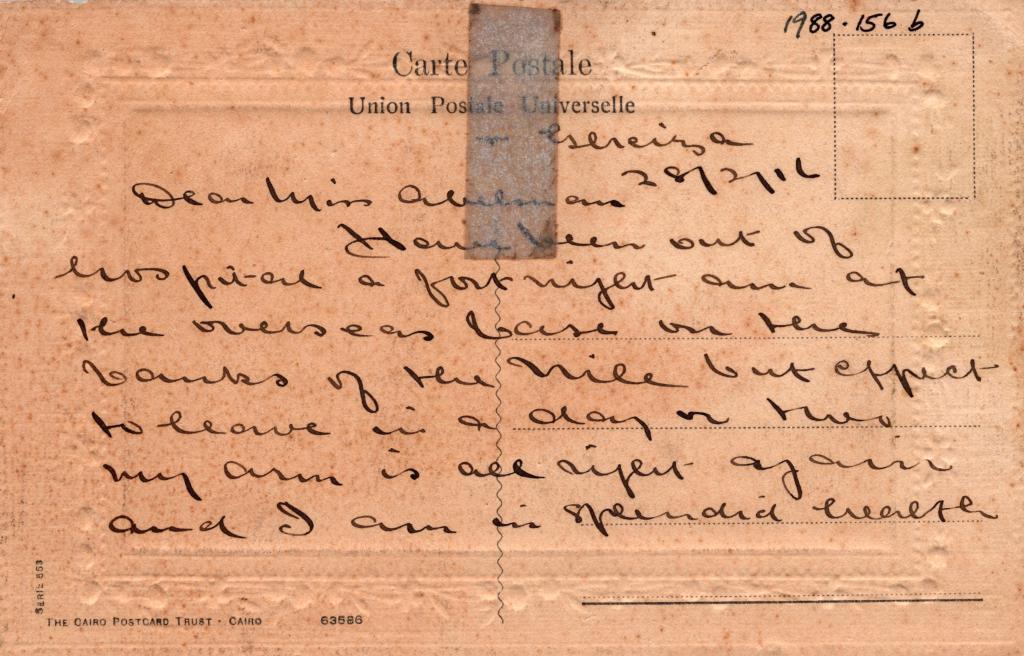 1988.156 b
Carte Postale
Union Postale Universelle
Gsereiza
28/2/16
Dear Miss Abelman
Have been out of
hospital a fortnight am at
the overseas base on the
banks of the Nile but effect
to leave in a day or two
my arm is all right again
and I am in splendid health
SERIE 553
THE CAIRO POSTCARD TRUST - CAIRO 63586